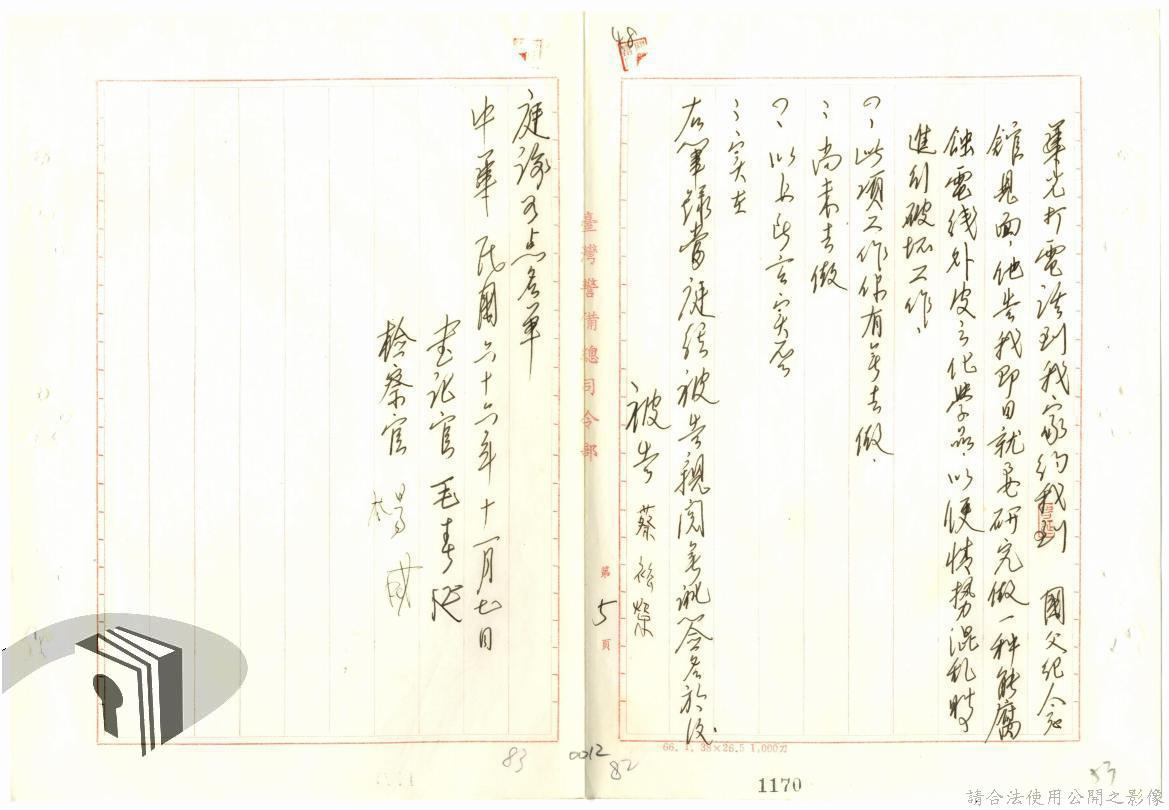 48
華光打電話到我家約我到　國父紀念
館見面，他告我即日就要研究做一種能腐
蝕電线外皮之化學品，以便情势混乱時
進行破坏工作，
問、此項工作你有無去做，
答、尚未去做
問、以上所言实否
答、实在
右筆錄當庭經被告親閱無訛簽名於後
被告 蔡裕榮
臺灣警備總司令部
第 5 頁
庭諭可点名單
中華民國六十六年十一月七日
書記官 毛青延
檢察官 楊
66. 1. 38×26.5 1,000刀
83
0012
82
1170
83
請合法使用公開之影像